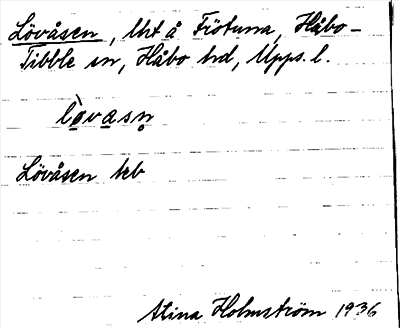 Lövåsen, lht å Frötuna, Håbo-
Tibble sn, Håbo hd, Upps. l.
lòvasn̥
Lövåsen kb
Stina Holmström 1936